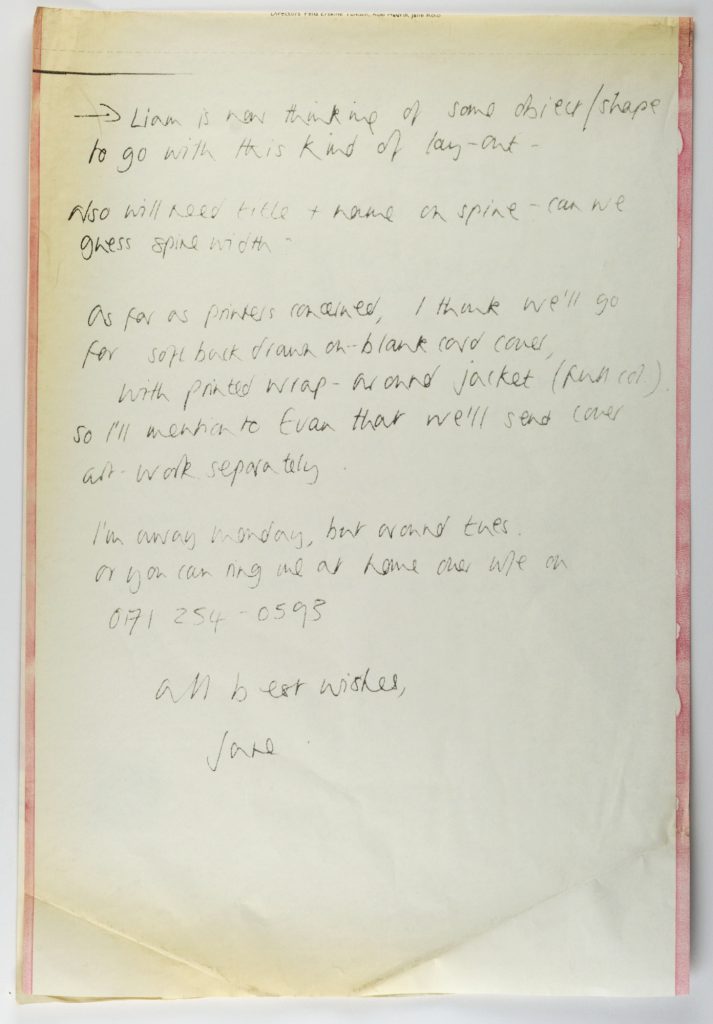 → Liam is now thinking of some object/shape
to go with this kind of lay-out -
Also will need title + name on spine - can we
guess spine width -
As far as printers concerned, I think we'll go
for soft back drawn on-blank card cover,
with printed wrap-around jacket (full col.).
so I'll mention to Evan that we'll send cover
art-work separately.
I'm away Monday, but around tues.
or you can ring me at home over w/e on
0171 254-0593
All best wishes,
Jane.